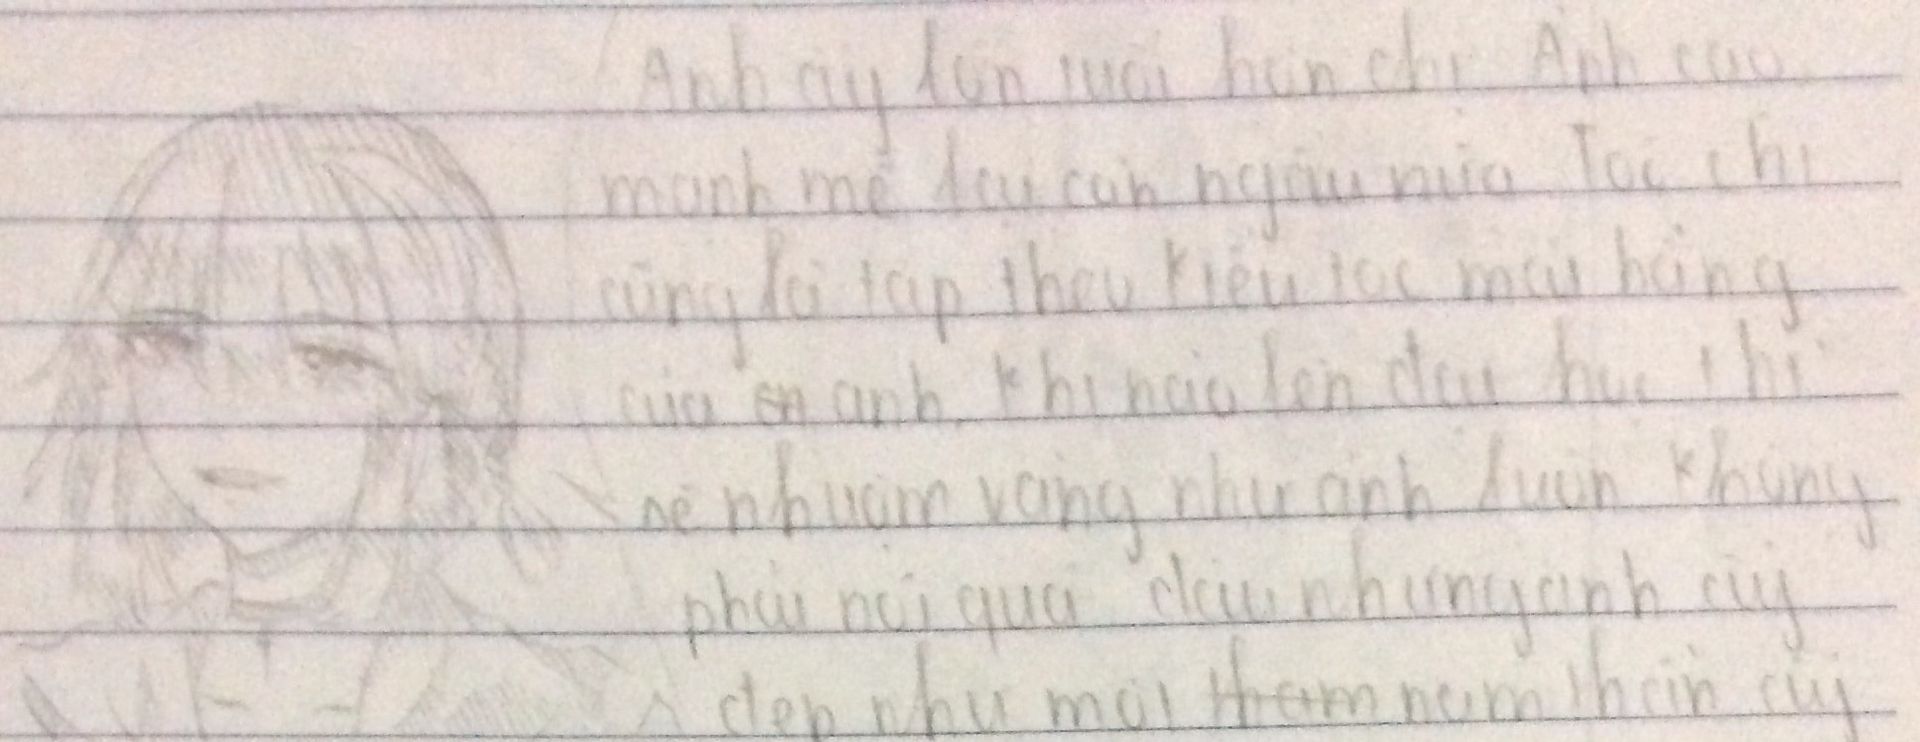 Anh ấy lớn tuổi hơn chị Anh cao
mạnh mẽ lại còn ngầu nữa Tóc chị
cũng là tập theo kiểu tóc mái bằng
của anh. Khi nào lên đại học chị
sẽ nhuộm vàng như anh luôn Không
phải nói quá đâu nhưng anh ấy
đẹp như một nam thần ấy